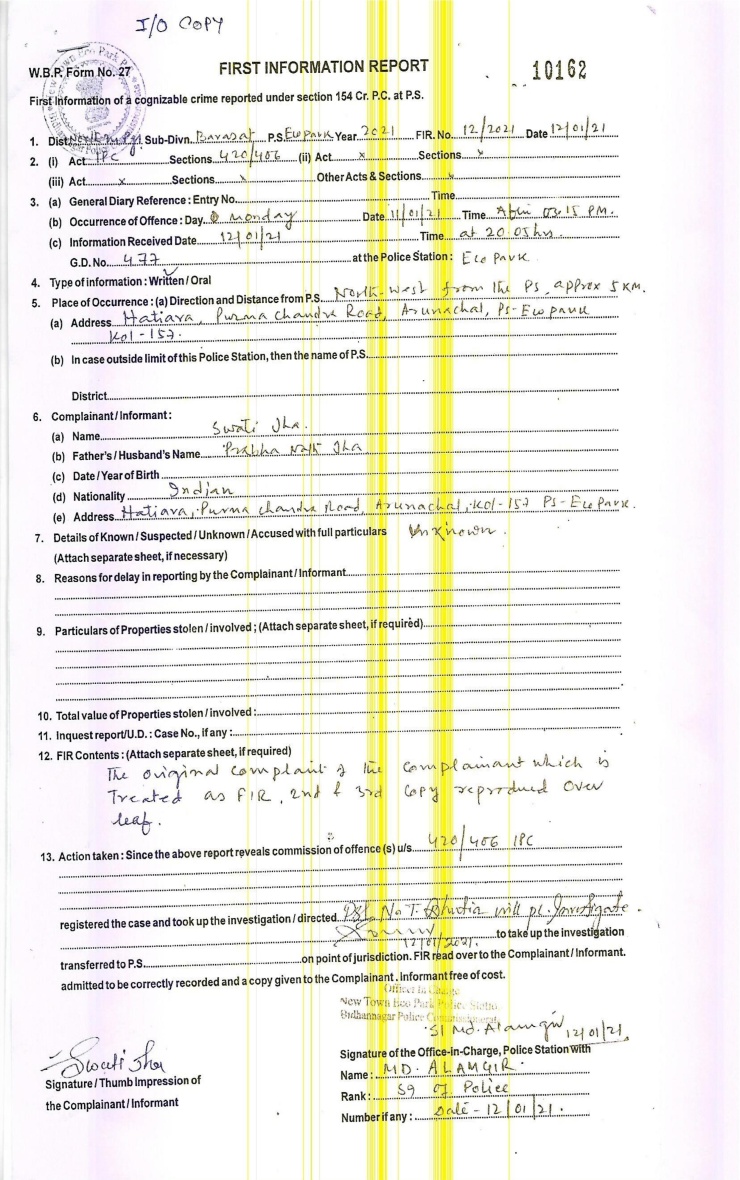 I/O COPY
New Town Eco Park P.S.
W.B.P. Form No. 27
FIRST INFORMATION REPORT
10162
First Information of a cognizable crime reported under section 154 Cr. P.C. at P.S.
1. Dist. Sub-Divn. Barasat P.S. Eco Park Year 2021 FIR. No. 12/2021 Date 12/01/21
2. (i) Act IPC Sections 420/406 (ii) Act x Sections x
(iii) Act x Sections x Other Acts & Sections x
3. (a) General Diary Reference : Entry No. Time
(b) Occurrence of Offence : Day Monday Date 11/01/21 Time 03.15 PM.
(c) Information Received Date 12/01/21 Time at 20.05 hrs.
G.D. No. 477 at the Police Station : Eco Park
4. Type of information : Written / Oral
5. Place of Occurrence : (a) Direction and Distance from P.S. North-West from the PS, approx 5 KM.
(a) Address Hatiara, Purna Chandra Road, Arunachal, PS-Eco park
Kol-157.
(b) In case outside limit of this Police Station, then the name of P.S.
District
6. Complainant / Informant :
(a) Name Swati Jha.
(b) Father's / Husband's Name Prabha Nath Jha
(c) Date / Year of Birth
(d) Nationality Indian
(e) Address Hatiara, Purna Chandra Road, Arunachal, Kol-157 PS-Eco Park.
7. Details of Known / Suspected / Unknown / Accused with full particulars Unknown.
(Attach separate sheet, if necessary)
8. Reasons for delay in reporting by the Complainant / Informant
9. Particulars of Properties stolen / involved ; (Attach separate sheet, if required)
10. Total value of Properties stolen / involved :
11. Inquest report / U.D. : Case No., if any :
12. FIR Contents : (Attach separate sheet, if required)
The original complaint of the Complainant which is
Treated as FIR, 2nd & 3rd Copy reproduced over
leaf.
13. Action taken : Since the above report reveals commission of offence (s) u/s. 420/406 IPC
registered the case and took up the investigation / directed PSI N. T. Bhutia will pl. Investigate.
12/01/2021. to take up the investigation
transferred to P.S. on point of jurisdiction. FIR read over to the Complainant / Informant.
admitted to be correctly recorded and a copy given to the Complainant. Informant free of cost.
Officer in Charge
New Town Eco Park Police Station
Bidhannagar Police Commissionerate
SI Md. Alamgir 12/01/21
Swati Jha
Signature of the Office-in-Charge, Police Station with
Signature / Thumb Impression of
Name : MD. ALAMGIR.
the Complainant / Informant
Rank : of Police
Number if any : Date - 12/01/21.